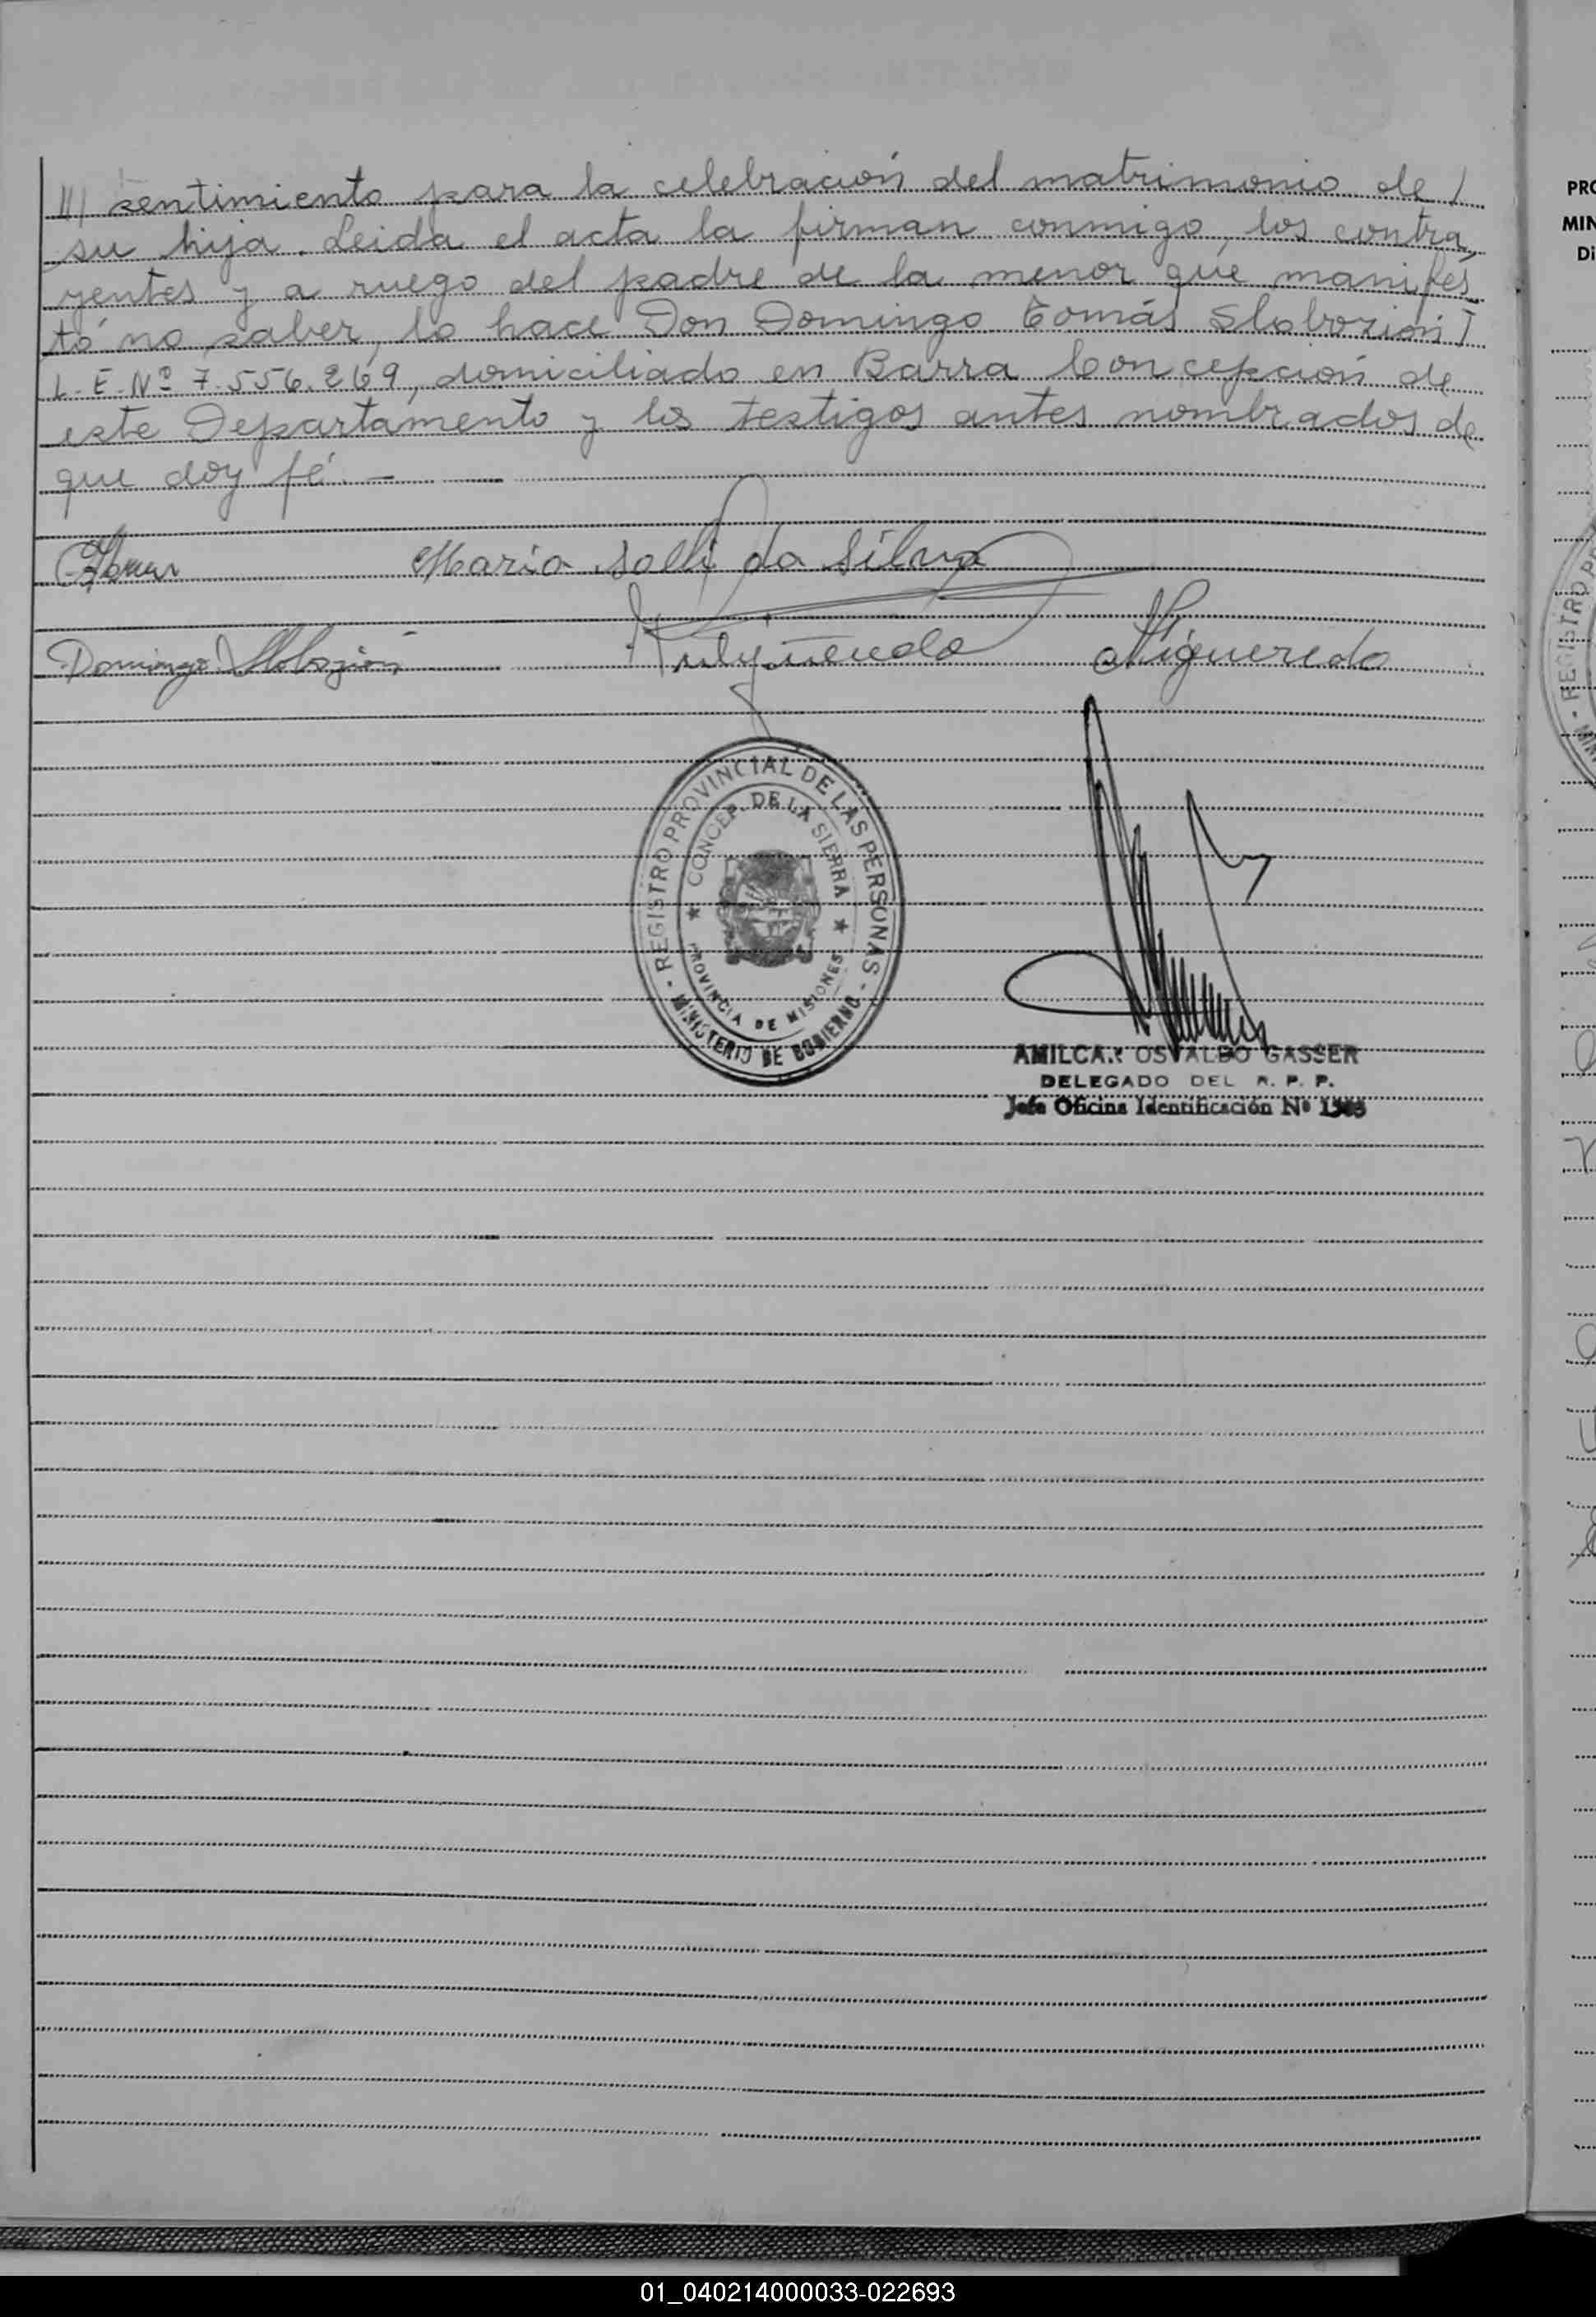 /// sentimiento para la celebración del matrimonio de /
su hija. Leida el acta la firman conmigo, los contra
yentes y a ruego del padre de la menor que manifes
tó no saber, lo hace Don Domingo Tomás Slobozion
L. E. Nº 7.556.269, domiciliado en Barra Concepción de
este Departamento y los testigos antes nombrados de
que doy fé. —
Maria da Silva
Domingo Slobozion
Figueredo
- REGISTRO PROVINCIAL DE LAS PERSONAS -
MINISTERIO DE GOBIERNO
★ CONCEP. DE LA SIERRA ★
PROVINCIA DE MISIONES
AMILCAR OSVALDO GASSER
DELEGADO DEL R. P. P.
Jefe Oficina Identificación Nº
PRO
MIN
Di
- REGISTRO P
MIN
01_040214000033-022693